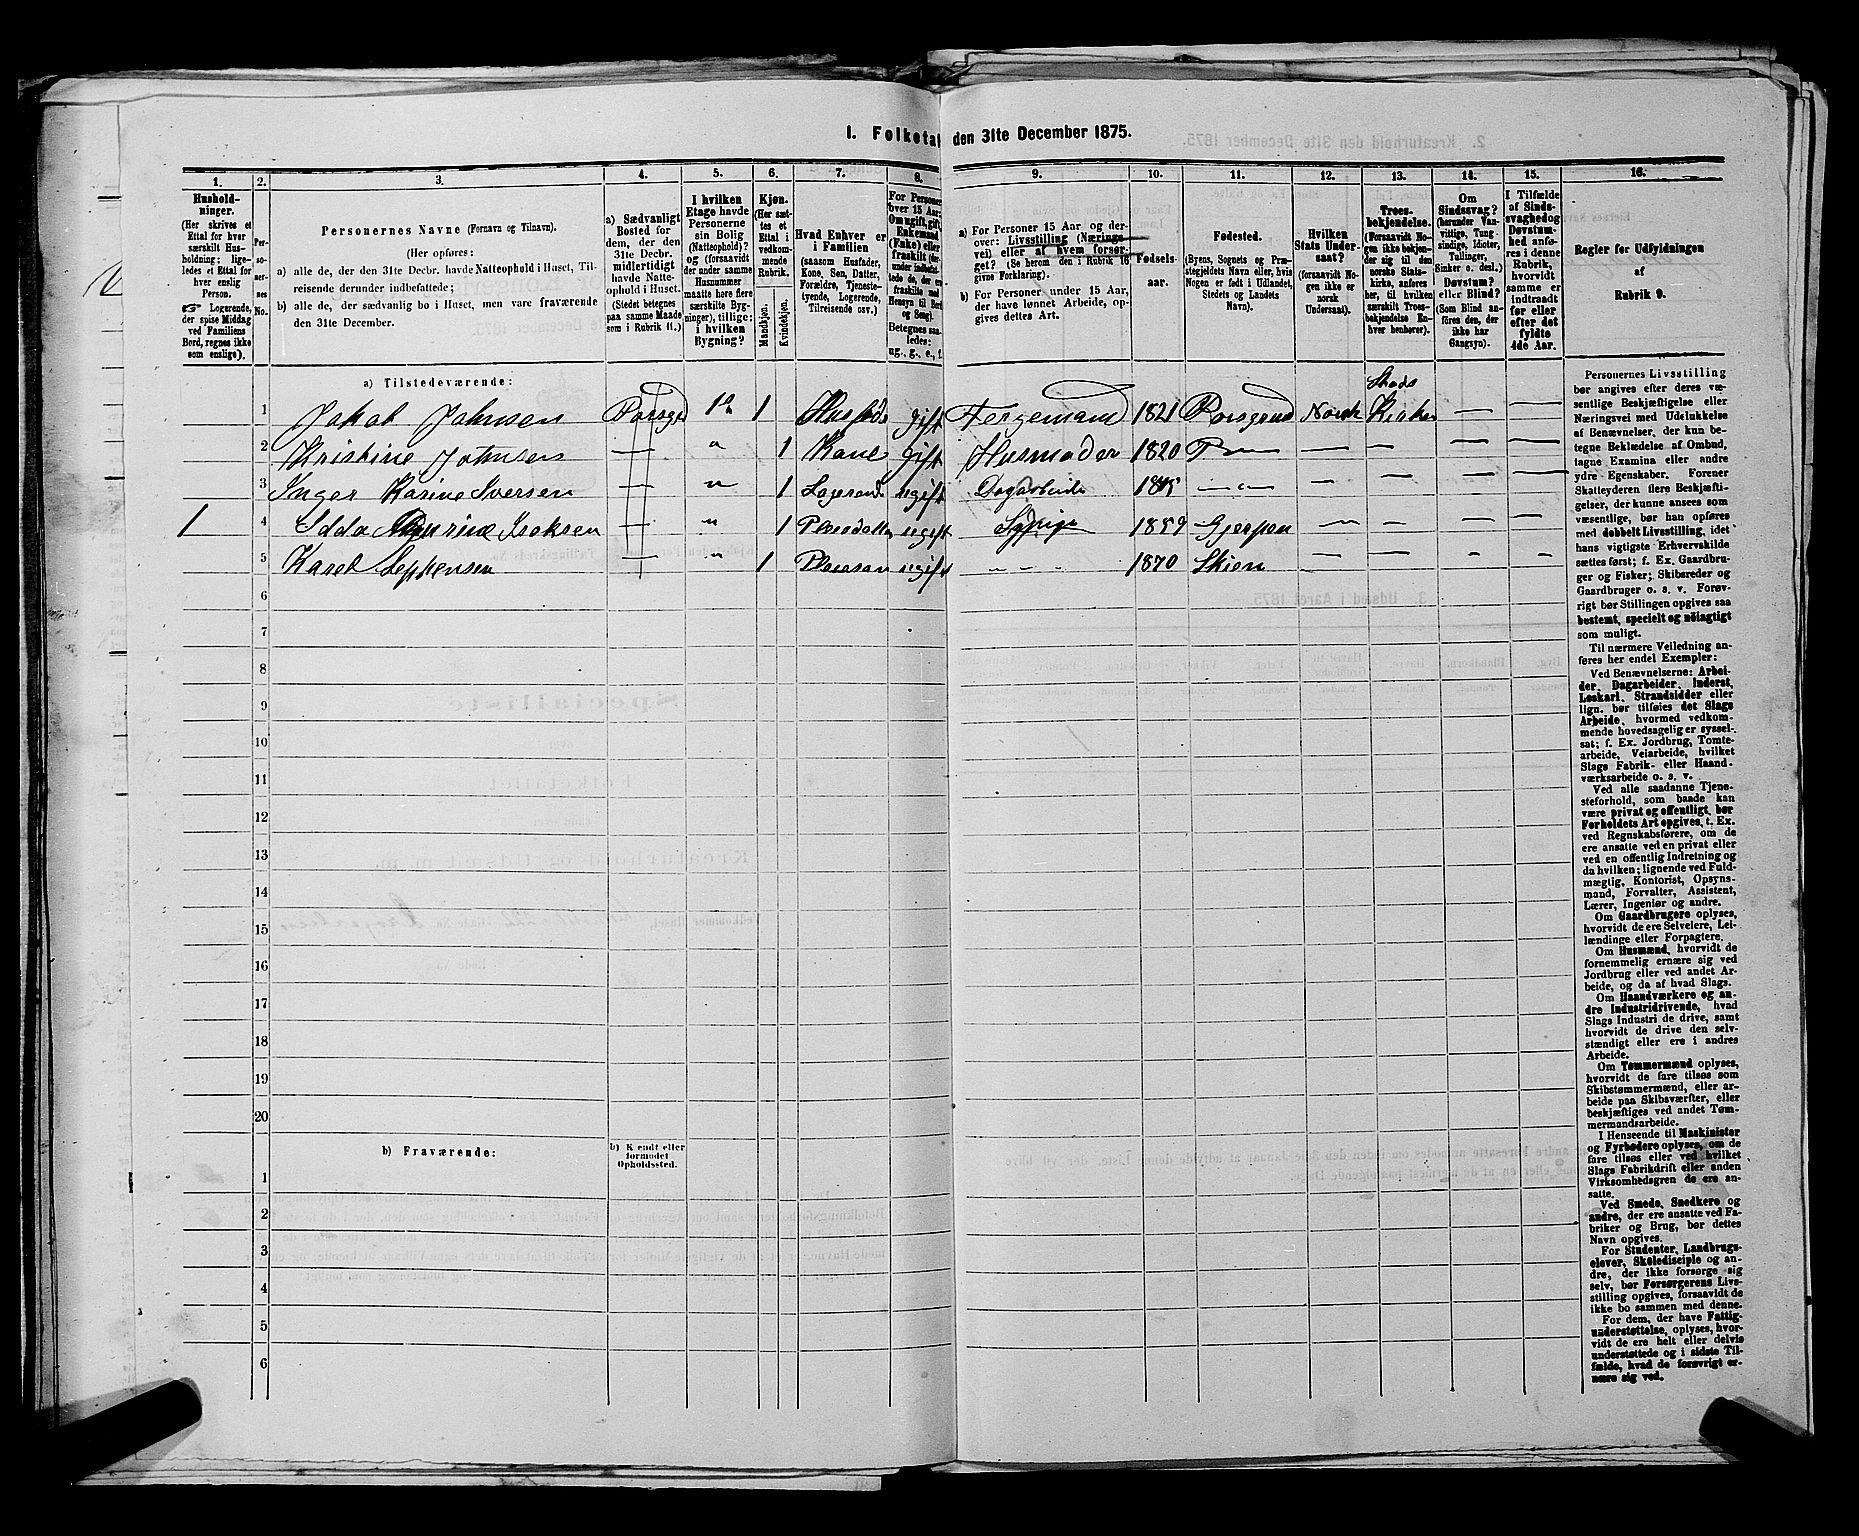 1. Folketal den 31te December 1875.
1.
2.
3.
4.
5.
6.
7.
8.
9.
10.
11.
12.
13.
14.
15.
16.
Hushold-
ninger.
(Her skrives et
Ettal for hver
særskilt Hus-
holdning; lige-
ledes et Ettal for
hver enslig
Person.
Logerende,
der spise Middag
ved Familiens
Bord, regnes ikke
som enslige).
Per-
so-
ner-
nes
No.
Personernes Navne (Fornavn og Tilnavn).
(Her opføres:
a) alle de, der den 31te Decbr. havde Natteophold i Huset, Til-
reisende derunder indbefattede;
b) alle de, der sædvanlig bo i Huset, men vare fraværende
den 31te December.
a) Sædvanligt
Bosted for
dem, der den
31te Decbr.
midlertidigt
havde Natte-
ophold i Huset.
(Stedet betegnes
paa samme Maade
som i Rubrik 11.)
I hvilken
Etage havde
Personerne
sin Bolig
(Natteophold)?
og (forsaavidt
der under samme
Husnummer
maatte høre flere
særskilte Byg-
ninger), tillige:
I hvilken
Bygning?
Kjøn.
(Her sæt-
tes et
Ettal i
vedkom-
mende
Rubrik.
Mandkjøn.
Kvindekjøn.
Hvad Enhver er
i Familien
(saasom Husfader,
Kone, Søn, Datter,
Forældre, Tjeneste-
tyende, Logerende,
Tilreisende osv.)
For Personer
over 15 Aar:
Om ugift, gift,
Enkemand
(Enke) eller
fraskilt
Betegnes saa-
ledes:
ug., g., e., f.
a) For Personer 15 Aar og der-
over: Livsstilling (Nærings-
vei) eller af hvem forsør-
get? (Se herom den i Rubrik 16
givne Forklaring).
b) For Personer under 15 Aar,
der have lønnet Arbeide, op-
gives dettes Art.
Fødsels-
aar.
Fødested.
(Byens, Sognets og Præ-
stegjeldets Navn eller, hvis
Nogen er født i Udlandet,
Stedets og Landets
Navn).
Hvilken
Stats Under-
saat?
(forsaavidt No-
gen ikke er
norsk
Undersaat).
Troes-
bekjendelse.
(Forsaavidt No-
gen ikke bekjen-
der sig til den
norske Stats-
kirke, anføres
her, til hvilken
særskilt Troes-
bekjendelse En-
hver henhører).
Om
Sindssvag?
(herunder Van-
vittige, Tung-
sindige, Idioter,
Tullinger,
Sinker o. desl.)
Døvstum?
eller Blind?
(Som Blind an-
føres den, der
ikke har
Gangsyn).
I Tilfælde
af Sinds-
svaghed og
Døvstum-
hed anfø-
res i denne
Rubrik,
hvorvidt
samme er
indtraadt
før eller
efter det
fyldte
4de Aar.
Regler for Udfyldningen
af
Rubrik 9.
a) Tilstedeværende:
1 Jakob Johnsen Porsgrd 1e 1 Husfader gift Færgemand 1821 Porsgrund Norsk Stads Kirken — —
2 Kristine Johnsen — " 1 Kone gift Husmoder 1820 P— — — — —
3 Inger Karine Iversen — " 1 Logerende ugift Dagarbeide — " — — — — —
1 4 Idda Isaksen — " 1 Pleiedatter ugift Sypige 1859 Gjerpen — — — —
5 Karel — " 1 Pleiesøn ugift " " " 1870 Skien — — — —
6
7
8
9
10
11
12
13
14
15
16
17
18
19
20
b) Fraværende:
b) Kjendt eller
formodet
Opholdssted.
1
2
3
4
5
6
Personernes Livsstilling
bør angives efter deres væ-
sentlige Beskjæftigelse eller
Næringsvei med Udelukkelse
af Benævnelser, der kun be-
tegne Beklædelse af Ombud,
tagne Examina eller andre
ydre Egenskaber. Forener
Skatteyderen flere Beskjæfti-
gelser, der kunne ansees som
væsentlige, bør han opføres
med dobbelt Livsstilling, idet
hans vigtigste Erhvervskilde
sættes først; f. Ex. Gaardbru-
ger og Fisker; Skibsreder og
Gaardbruger o. s. v. Forøv-
rigt bør Stillingen opgives saa
bestemt, specielt og nøiagtigt
som muligt.
Til nærmere Veiledning an-
føres her endel Exempler:
Ved Benævnelserne: Arbei-
der, Dagarbeider, Inderst,
Løskarl, Strandsidder eller
lign. bør tilføies det Slags
Arbeide, hvormed vedkom-
mende hovedsagelig er syssel-
sat; f. Ex. Jordbrug, Tomte-
arbeide, Veiarbeide, hvilket
Slags Fabrik- eller Haand-
værksarbeide o. s. v.
Ved alle saadanne Tjene-
steforhold, som baade kan
være privat og offentligt, bør
Forholdets Art opgives, t. Ex.
ved Regnskabsførere, om de
ere ansatte ved en privat eller
ved en offentlig Indretning og
da hvilken; lignende ved Fuld-
mægtig, Kontorist, Opsyns-
mand, Forvalter, Assistent,
Lærer, Ingeniør og andre.
Om Gaardbrugere oplyses,
hvorvidt de ere Selveiere, Lei-
lændinge eller Forpagtere.
Om Husmænd, hvorvidt de
fornemmelig ernære sig ved
Jordbrug eller ved andet Ar-
beide, og da af hvad Slags.
Om Haandværkere og an-
dre Industridrivende, hvad
Slags Industri de drive, samt
hvorvidt de drive den selv-
stændigt eller ere i andres
Arbeide.
Om Tømmermænd oplyses,
hvorvidt de fare tilsøs som
Skibstømmermænd, eller ar-
beide paa Skibsværfter, eller
beskjæftiges ved andet Tøm-
mermandsarbeide.
I Henseende til Maskinister
og Fyrbødere oplyses, om de
fare tilsøs eller ved hvilket
Slags Fabrikdrift eller anden
Virksomhedsgren de ere an-
satte.
Ved Smede, Snedkere og
andre, der ere ansatte ved Fa-
briker og Brug, bør dettes
Navn opgives.
For Studenter, Landbrugs-
elever, Skoledisciple og an-
dre, der ikke forsørge sig
selv, bør Forsørgerens Livs-
stilling opgives, forsaavidt de
ikke bo sammen med denne.
For dem, der have Fattig-
understøttelse, oplyses, hvor-
vidt de ere helt eller delvis
understøttede og i sidste Til-
fælde, hvad de forøvrigt er-
nære sig ved.